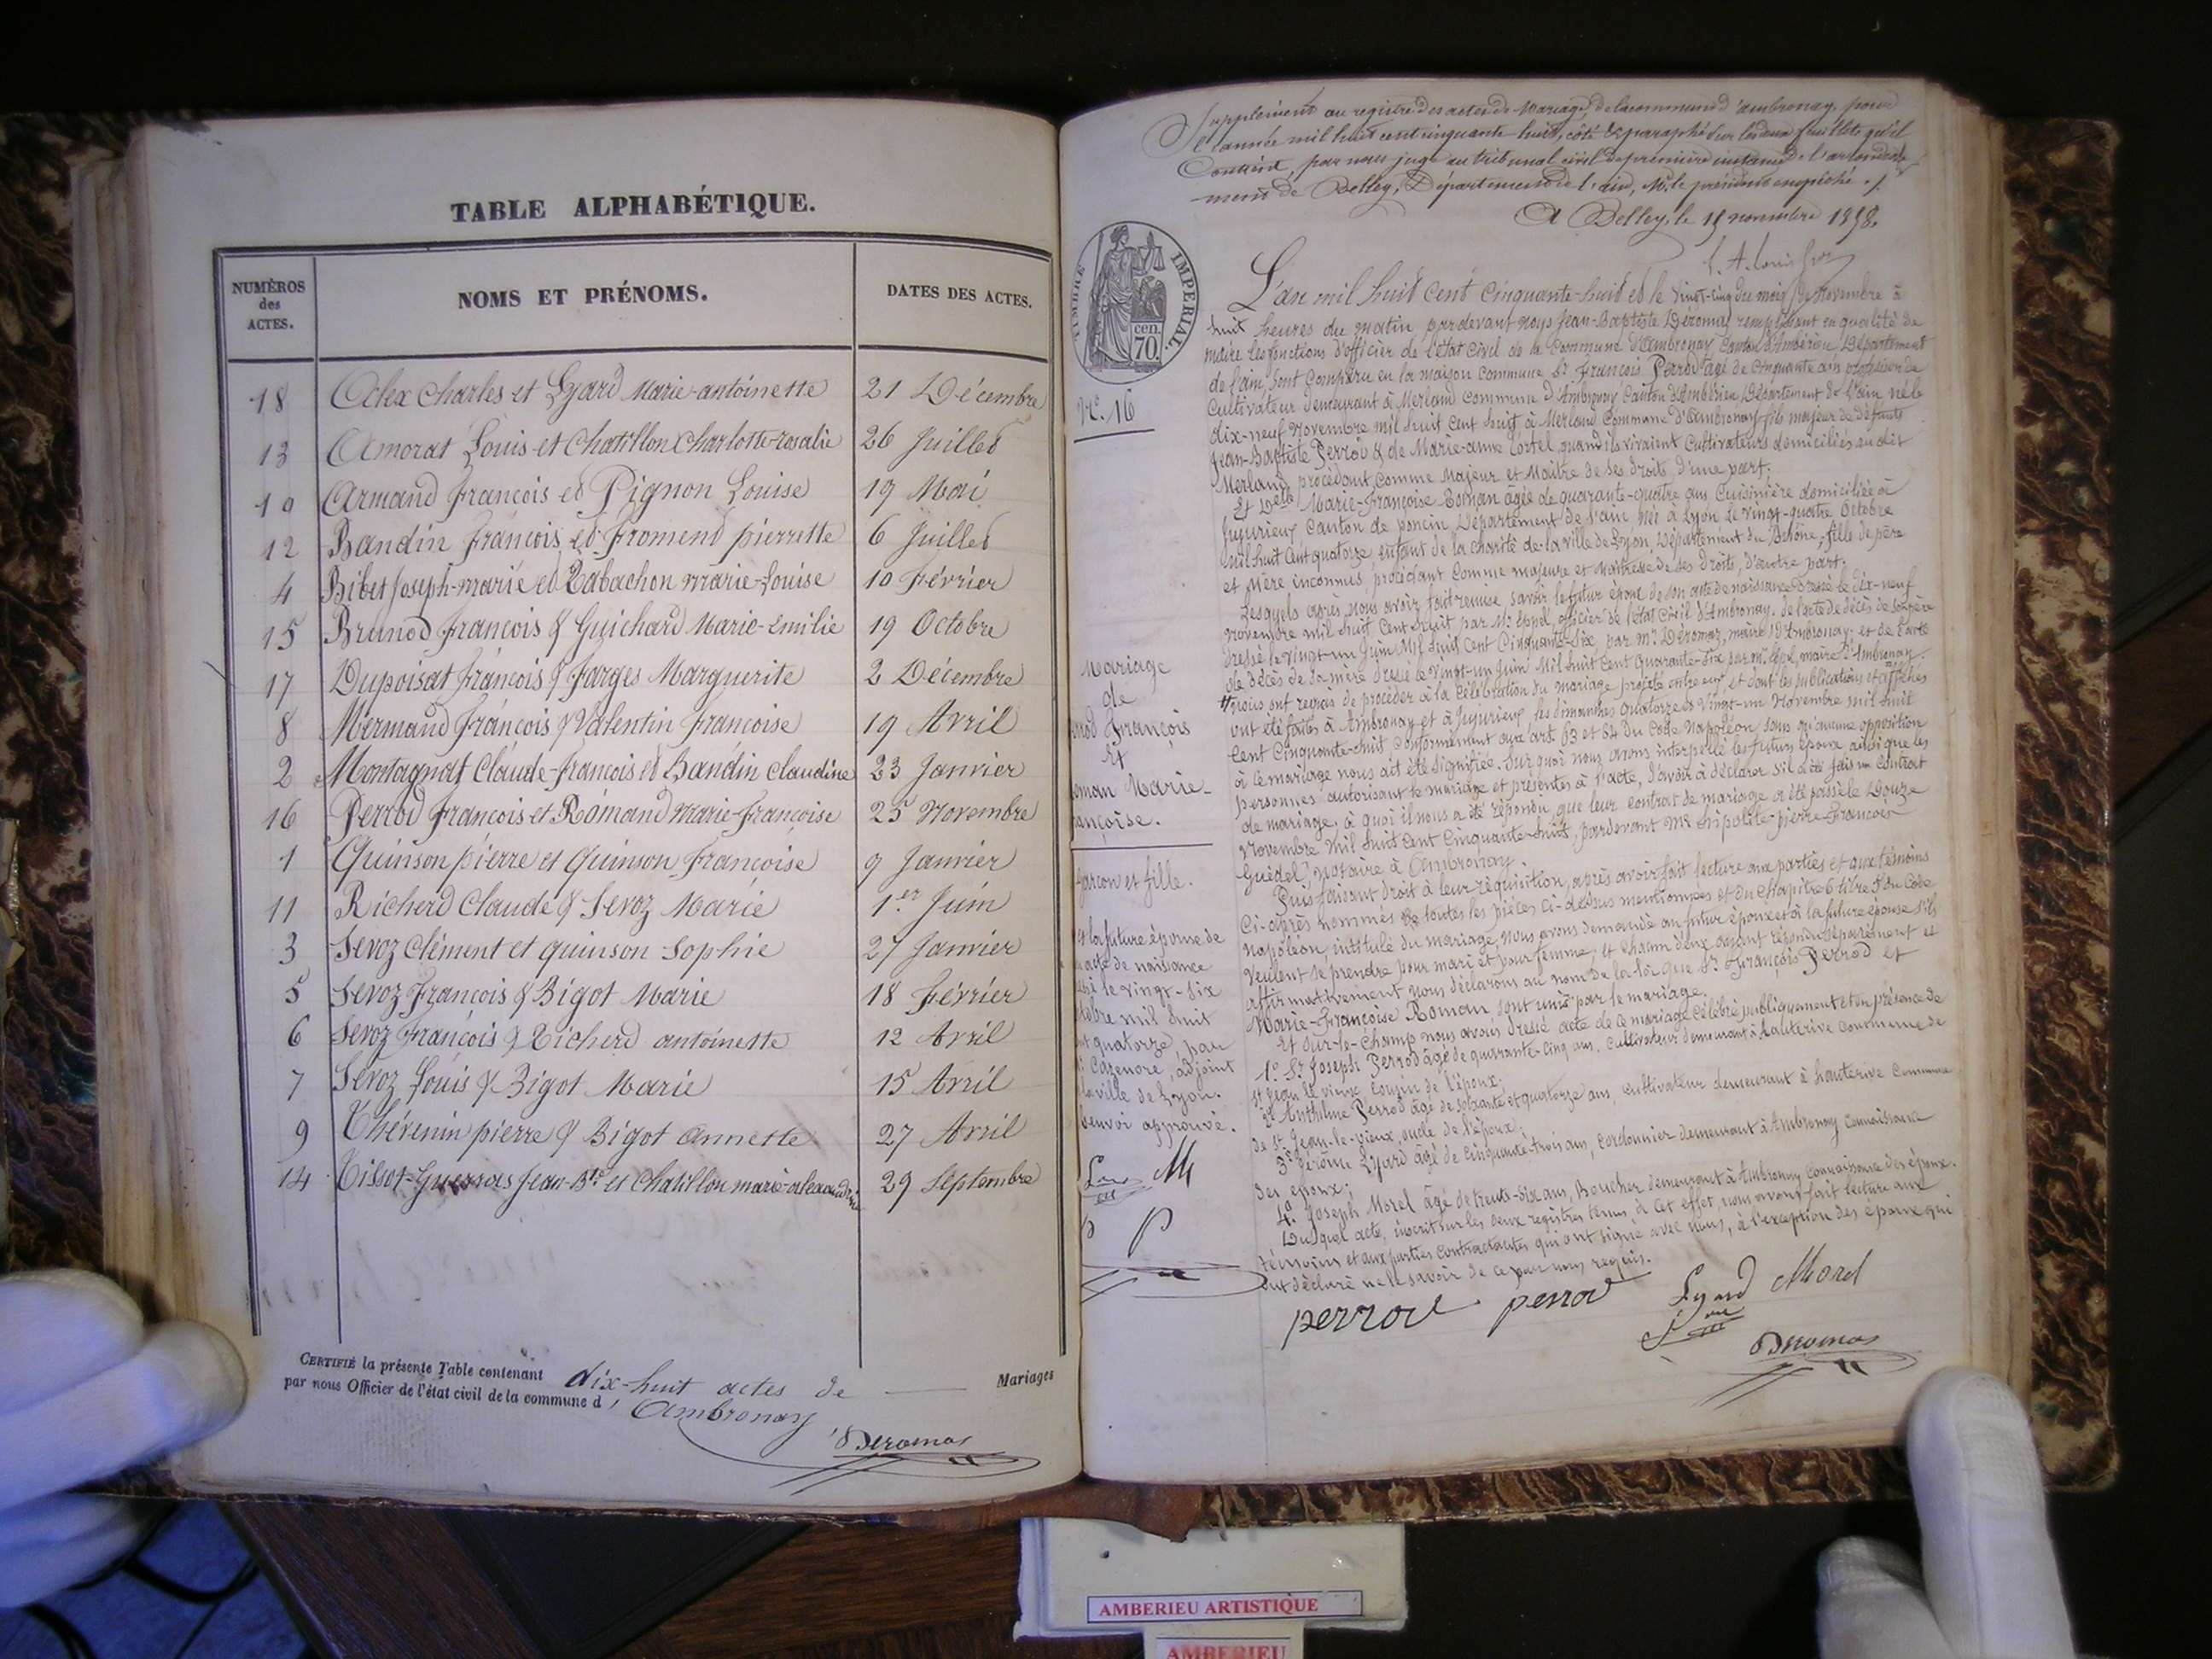 TABLE ALPHABÉTIQUE.
NUMÉROS des ACTES.
NOMS ET PRÉNOMS.
DATES DES ACTES.
18 Charles et Lyard Marie-antoinette 21 Décembre
13 Amorat Louis et Chatillon Charlotte-rosalie 26 Juillet
10 Armand François et Pignon Louise 19 Mai
12 Bandin François et Froment pierrette 6 Juillet
4 Bibet Joseph-marie et marie-Louise 10 Février
15 Brunod François & Guichard Marie-Emilie 19 Octobre
17 Dupoisat François & Farges Marguerite 2 Décembre
8 Mermand François & Valentin Françoise 19 Avril
2 Montagnat Claude-François et Bandin Claudine 23 Janvier
16 Perrod François et Romand Marie-Françoise 25 Novembre
1 Quinson pierre et Quinson Françoise 9 Janvier
11 Richerd Claude & Sevoz Marie 1er Juin
3 Sevoz Clément et quinson Sophie 27 Janvier
5 Sevoz François & Bigot Marie 18 Février
6 Sevoz François & Richerd antoinette 12 Avril
7 Sevoz Louis & Bigot Marie 15 Avril
9 Thévenin pierre & Bigot Annette 27 Avril
14 Tissot-Guerraz Jean-Bte et Chatillon marie-alexandrine 29 Septembre
CERTIFIÉ la présente Table contenant dix-huit actes de Mariages
par nous Officier de l'état civil de la commune d'Ambronay
Deromas
Supplément au registre des actes de Mariage, de la commune d'ambronay, pour
l'année mil huit cent cinquante huit, côté & paraphé sur les deux feuillets qu'il
Contient, par nous juge au tribunal civil de première instance de l'arrondisse-
ment de Belley, Département de l'ain, Mr le président empêché ./.
A Belley, le 15 novembre 1858.
TIMBRE IMPERIAL
70 cen.
No. 16
L'an mil huit cent cinquante-huit et le vingt-cinq du mois de Novembre à
huit heures du matin, pardevant nous Jean-Baptiste Déromas remplissant en qualité de
maire les fonctions d'officier de l'état civil de la Commune d'Ambronay Canton d'Ambérieu Département
de l'ain, sont Comparu en la maison commune Sr François Perrod âgé de Cinquante ans profession de
Cultivateur demeurant à Merland Commune d'Ambronay Canton d'Ambérieu Département de l'ain né le
dix-neuf Novembre mil huit cent huit à Merland Commune d'Ambronay fils majeur de défunts
Jean-Baptiste Perrod & de Marie-anne Cortel quand ils vivaient Cultivateurs domiciliés au dit
Merland, procédant comme Majeur et Maître de ses droits d'une part.
Et Delle Marie-Françoise Roman âgée de quarante-quatre ans Cuisinière domiciliée à
Jujurieux Canton de poncin Département de l'ain née à Lyon le vingt-quatre Octobre
mil huit cent quatorze, enfant de la charité de la ville de Lyon, Département du Rhône, fille de père
et mère inconnus, procédant Comme majeure et maîtresse de ses droits, d'autre part.
Lesquels après nous avoir fait remise, savoir le futur époux de son acte de naissance dressé le dix-neuf
Novembre mil huit Cent huit par Mr Eppel, officier de l'état civil d'Ambronay, de l'acte de décès de son père
dressé le vingt-un Juin Mil huit Cent Cinquante-six, par mr Déromas, maire d'Ambronay; et de l'acte
de décès de sa mère dressé le vingt-un Juin Mil huit Cent quarante-six par mr Eppel, maire d'Ambronay.
nous ont requis de procéder à la Célébration du mariage projeté entre eux, et dont les publications et affiches
ont été faites à Ambronay et à Jujurieux, les dimanches quatorze & vingt-un Novembre mil huit
Cent Cinquante-huit Conformément aux art. 63 et 64 du Code Napoléon sans qu'aucune opposition
à ce mariage nous ait été signifiée. Sur quoi nous avons interpellé les futurs époux ainsi que les
personnes autorisant le mariage et présentes à l'acte, d'avoir à déclarer s'il a été fait un Contrat
de mariage, à quoi il nous a été répondu que leur contrat de mariage a été passé le Douze
Novembre Mil huit Cent Cinquante-huit, pardevant Me hipolite-pierre-François
Guédel, Notaire à Ambronay.
Puis faisant droit à leur réquisition, après avoir fait lecture aux parties et aux témoins
Ci-après nommés de toutes les pièces ci-dessus mentionnées et du chapitre 6 titre 5 du Code
Napoléon, intitulé du mariage, nous avons demandé au futur époux et à la future épouse s'ils
veulent se prendre pour mari et pour femme, et chacun d'eux ayant répondu séparément et
affirmativement nous déclarons au nom de la loi que Sr François Perrod et
Marie-Françoise Roman sont unis par le mariage.
Et sur-le-champ nous avons dressé acte de ce mariage célébré publiquement et en présence de
1o Sr Joseph Perrod âgé de quarante-cinq ans, Cultivateur demeurant à hauterive Commune de
St Jean le vieux Cousin de l'époux;
2o Anthelme Perrod âgé de soixante et quatorze ans, cultivateur demeurant à hauterive Commune
de St Jean-le-vieux, oncle de l'époux;
3o Jérôme Lyard âgé de cinquante-trois ans, Cordonnier demeurant à Ambronay Connaissance
des époux;
4o Joseph Morel âgé de trente-six ans, Boucher demeurant à Ambronay Connaissance des époux.
Duquel acte, inscrit sur les deux registres tenus à cet effet, nous avons fait lecture aux
témoins et aux parties contractantes qui ont signé avec nous, à l'exception des époux qui
ont déclaré ne le savoir de ce par nous requis.
perrod perrod Lyard Morel
Deromas
Mariage
de
François
Et
Marie-
Garçon et fille.
et la future épouse de
acte de naissance
le vingt-six
mil huit
quatorze, par
Cazenove, adjoint
la ville de Lyon.
Renvoi approuvé.
AMBERIEU ARTISTIQUE
AMBERIEU